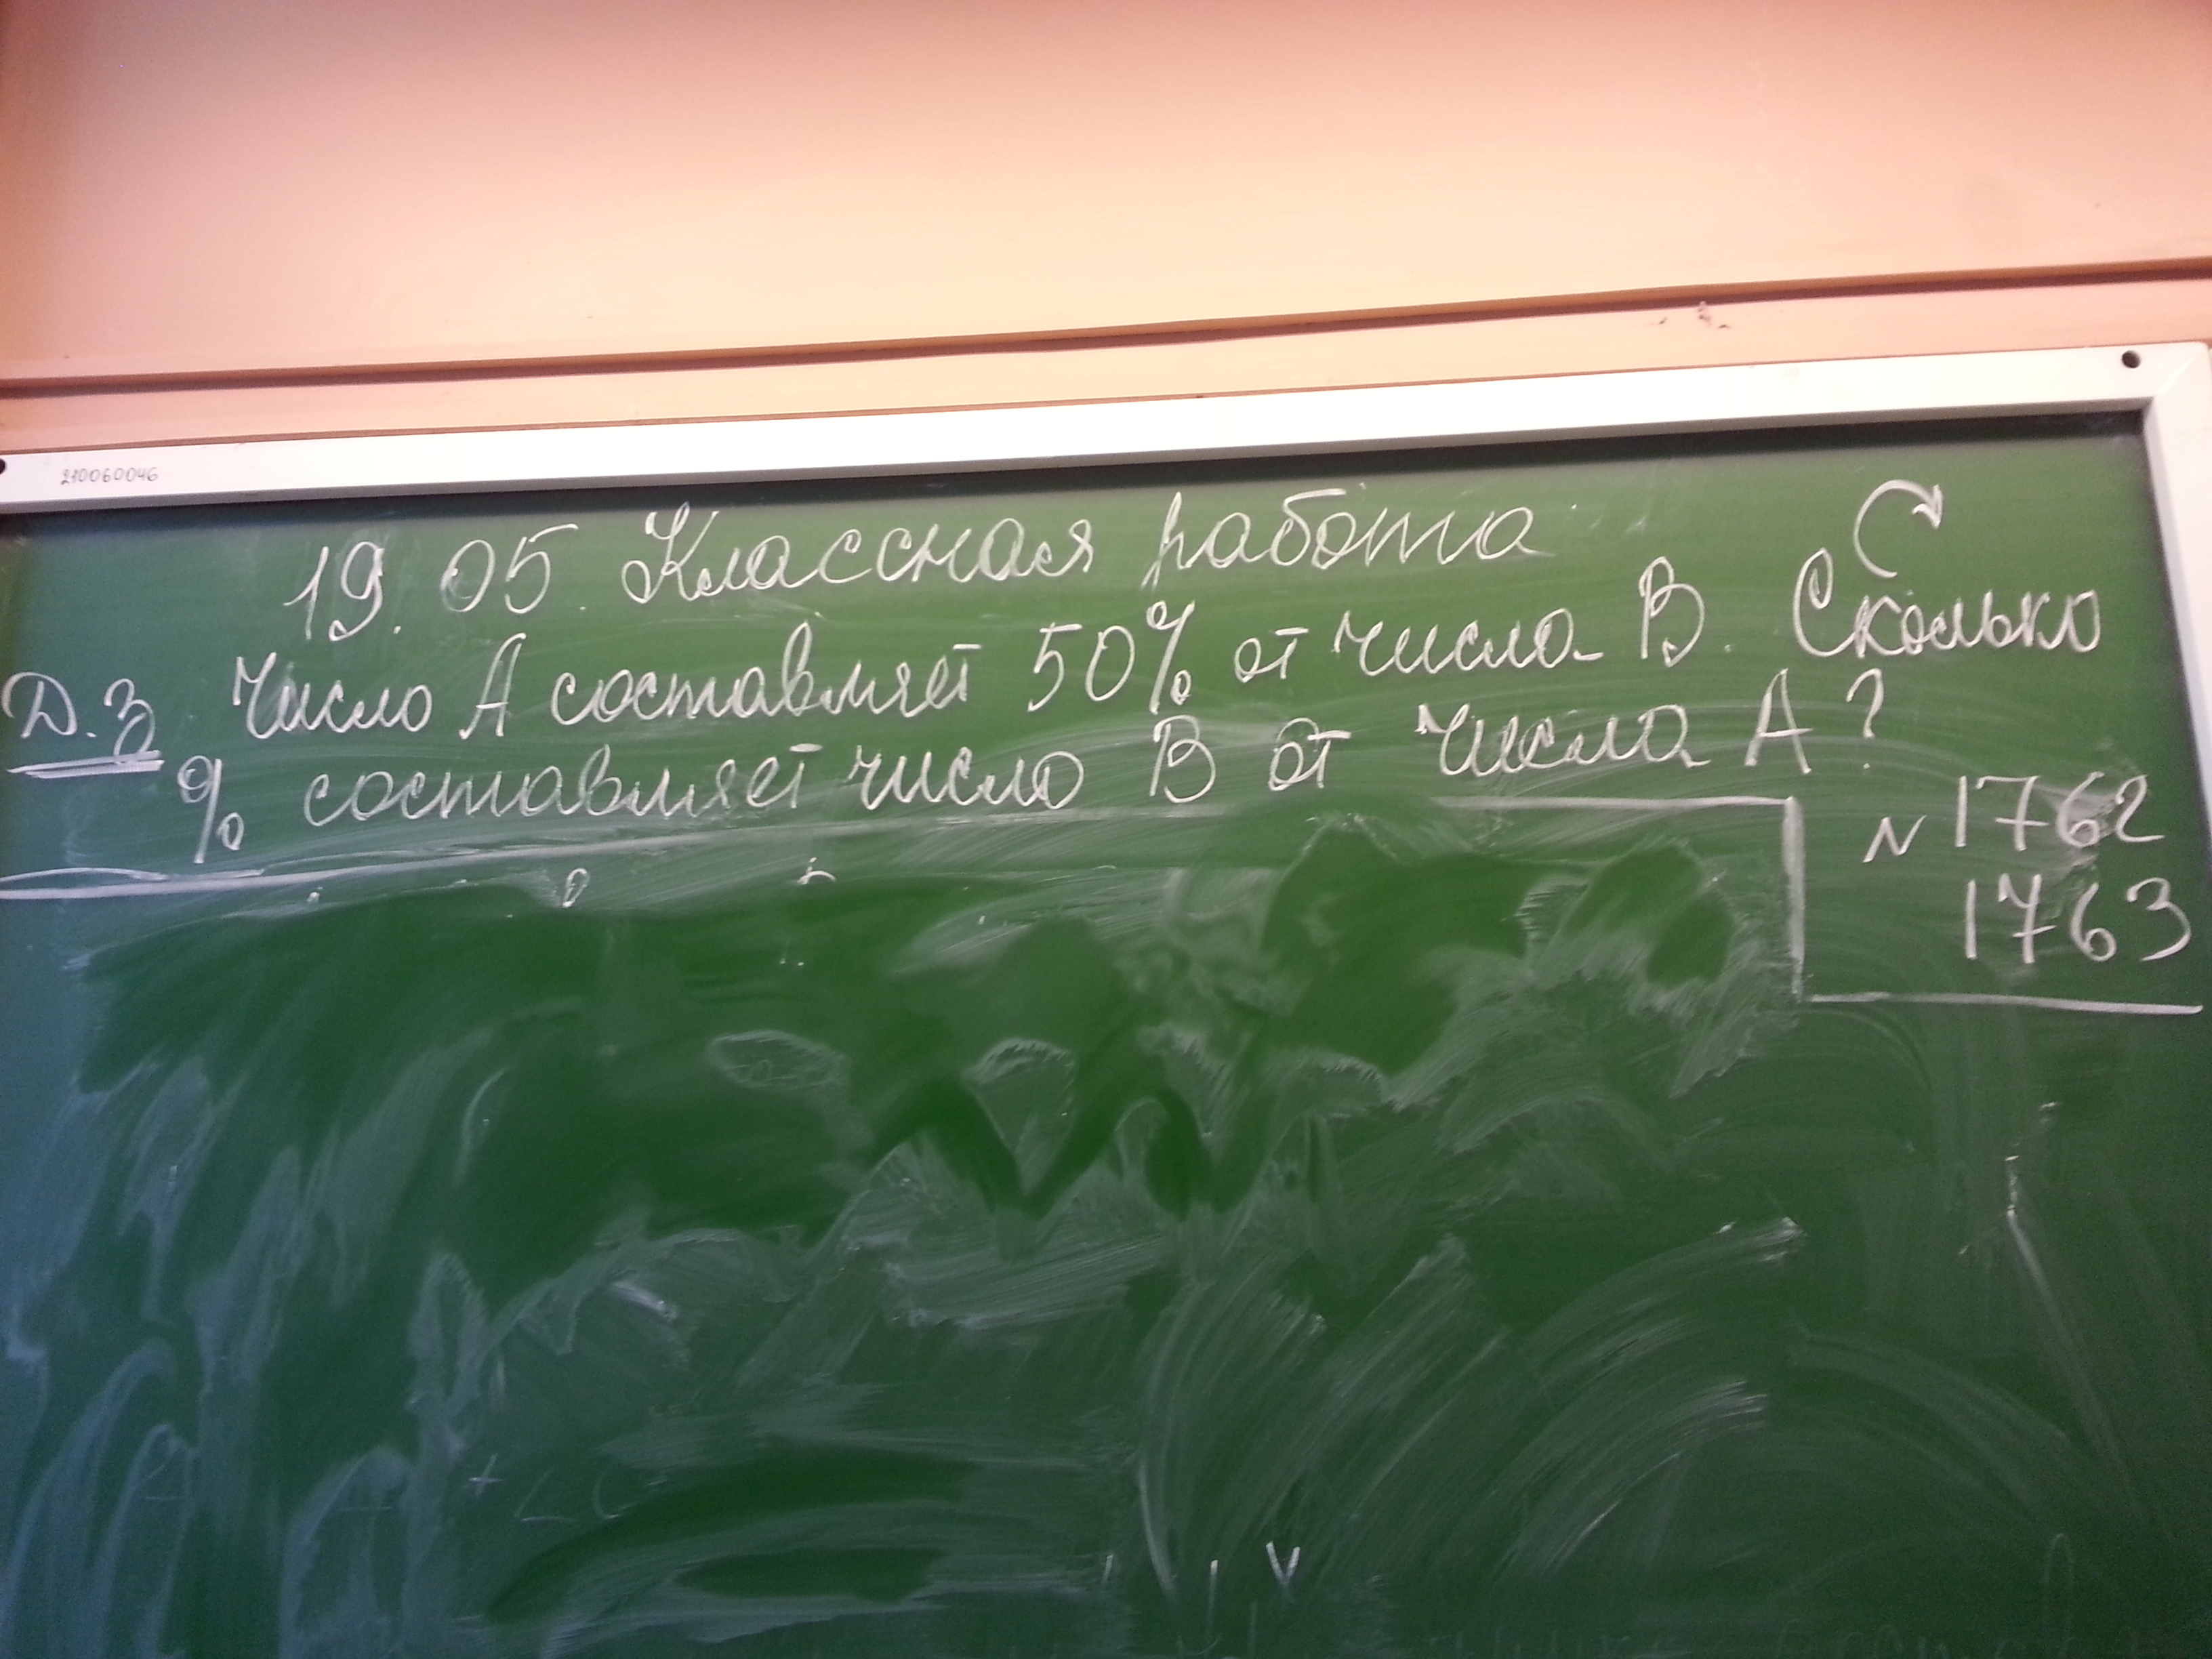 210060046
19.05. Классная работа
Д.З Число А составляет 50% от числа В. Сколько
% составляет число В от числа А?
N 1762
1763